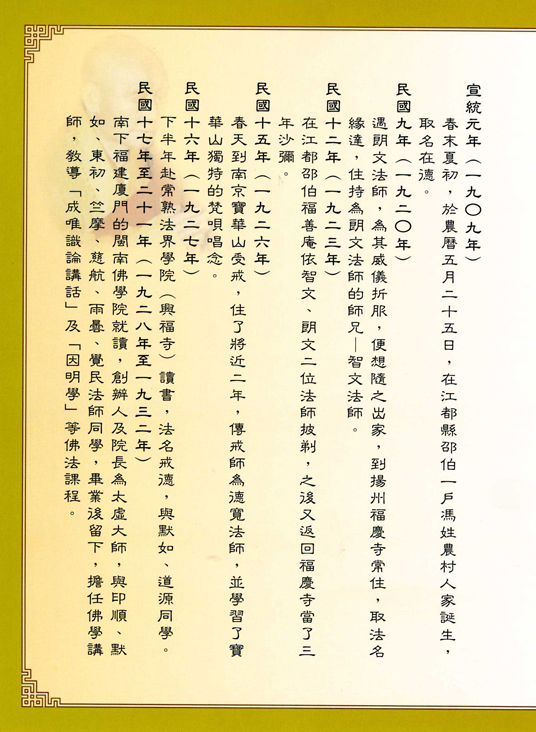 宣統元年（一九〇九年）
春末夏初，於農曆五月二十五日，在江都縣邵伯一戶馮姓農村人家誕生，
取名在德。
民國九年（一九二〇年）
遇朗文法師，為其威儀折服，便想隨之出家，到揚州福慶寺常住，取法名
緣達，住持為朗文法師的師兄—智文法師。
民國十二年（一九二三年）
在江都邵伯福善庵依智文、朗文二位法師披剃，之後又返回福慶寺當了三
年沙彌。
民國十五年（一九二六年）
春天到南京寶華山受戒，住了將近二年，傳戒師為德寬法師，並學習了寶
華山獨特的梵唄唱念。
民國十六年（一九二七年）
下半年赴常熟法界學院（興福寺）讀書，法名戒德，與默如、道源同學。
民國十七年至二十一年（一九二八年至一九三二年）
南下福建廈門的閩南佛學院就讀，創辦人及院長為太虛大師，與印順、默
如、東初、竺摩、慈航、雨曇、覺民法師同學，畢業後留下，擔任佛學講
師，教導「成唯識論講話」及「因明學」等佛法課程。